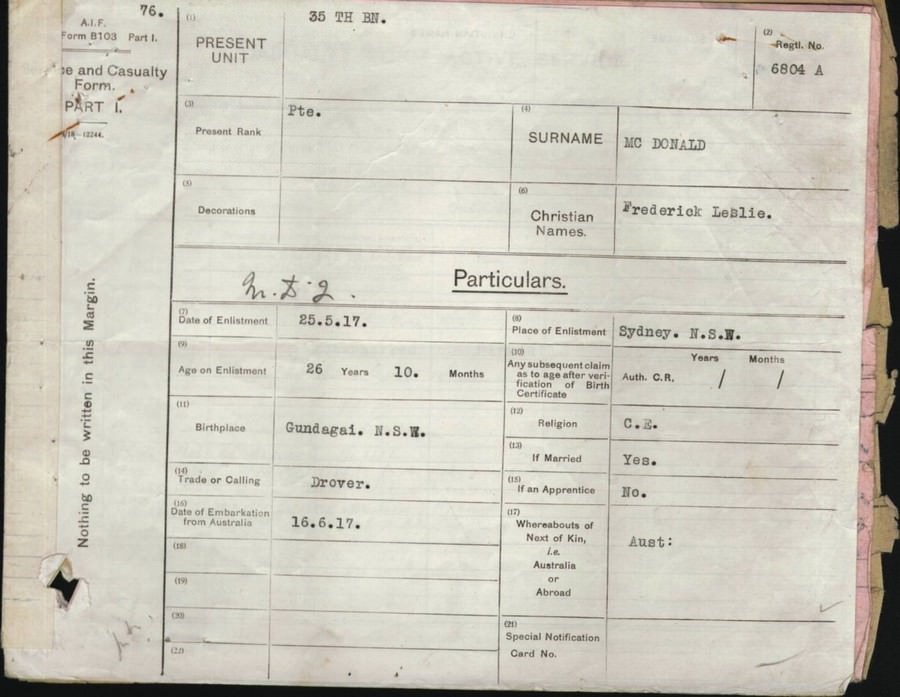 76.
A.I.F.
Form B103 Part I.
ce and Casualty
Form.
PART I.
12244.
Nothing to be written in this Margin.
(1)
PRESENT
UNIT
35 TH BN.
(2)
Regtl. No.
6804 A
(3)
Present Rank
Pte.
(4)
SURNAME
MC DONALD
(5)
Decorations
(6)
Christian
Names.
Frederick Leslie.
Particulars.
(7)
Date of Enlistment
25.5.17.
(8)
Place of Enlistment
Sydney. N.S.W.
(9)
Age on Enlistment
26 Years 10. Months
(10)
Any subsequent claim
as to age after veri-
fication of Birth
Certificate
Years Months
Auth. C.R. / /
(11)
Birthplace
Gundagai. N.S.W.
(12)
Religion
C.E.
(13)
If Married
Yes.
(14)
Trade or Calling
Drover.
(15)
If an Apprentice
No.
(16)
Date of Embarkation
from Australia
16.6.17.
(17)
Whereabouts of
Next of Kin,
i.e.
Australia
or
Abroad
Aust:
(18)
(19)
(20)
(21)
Special Notification
Card No.
(22)